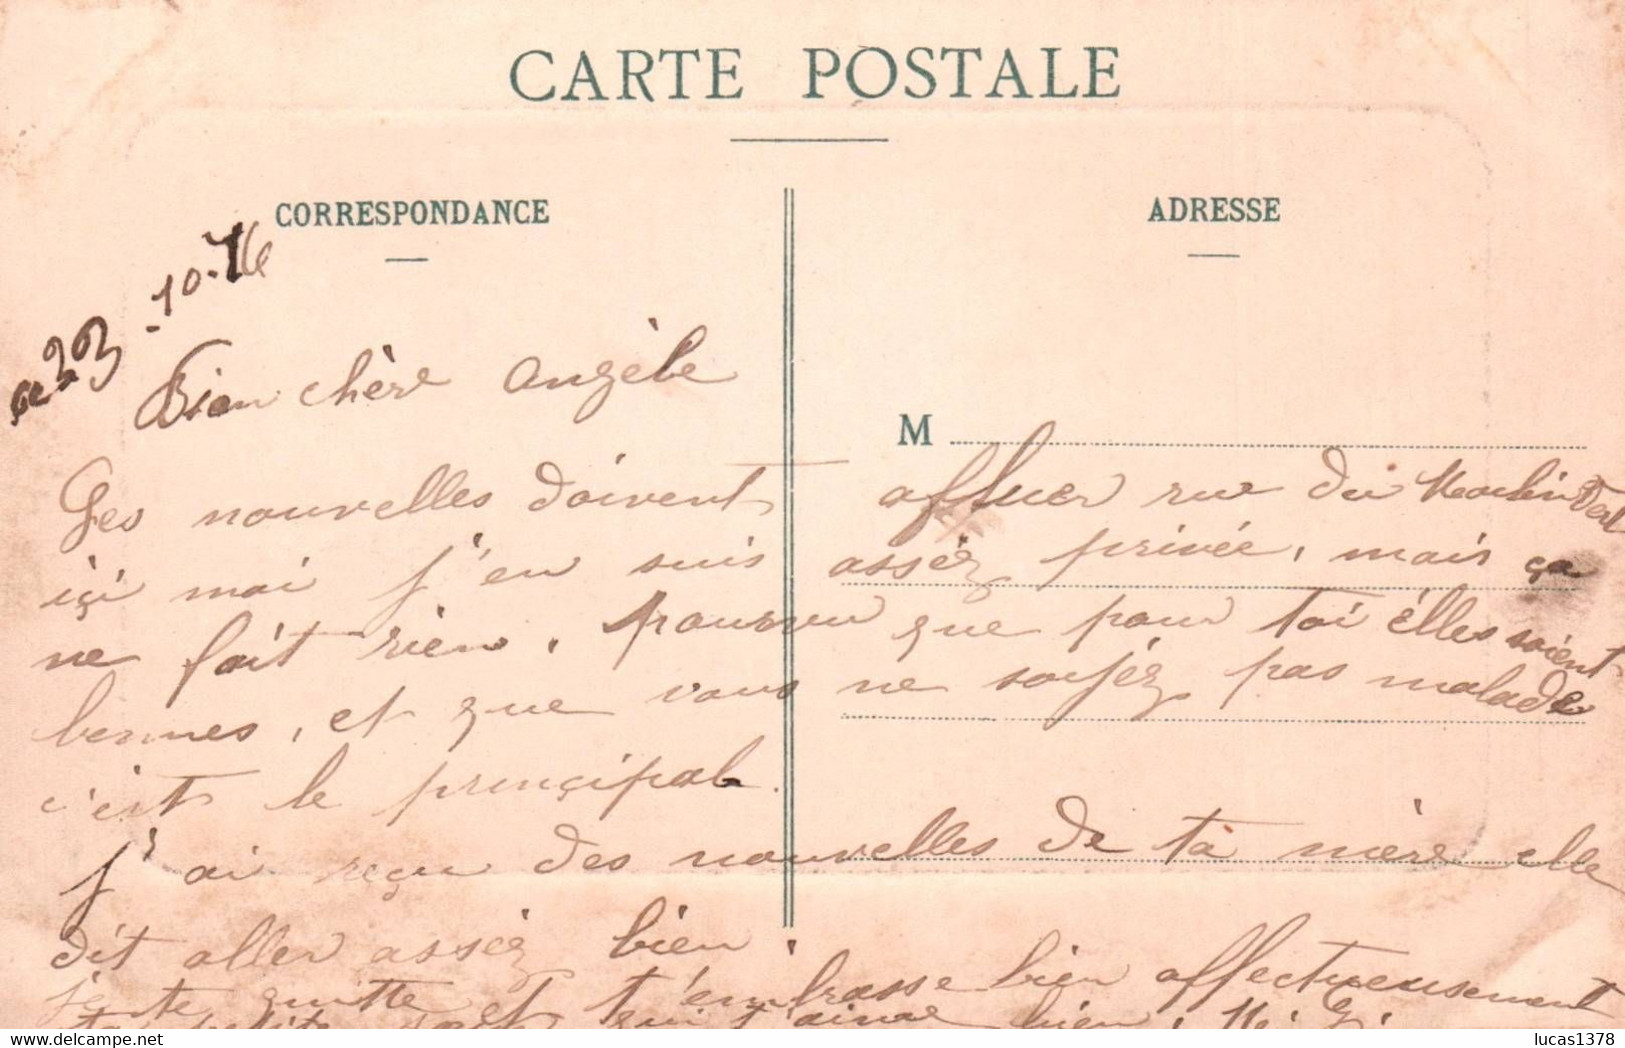 CARTE POSTALE
CORRESPONDANCE
ADRESSE
M
ce 23-10-16
Bien chère Angèle
Ges nouvelles doivent affluer rue du Moulin Vert
içi moi j'en suis asséz privée, mais ça
ne fait rien, pourvu que pour toi élles soient
bonnes, et que vous ne soyéz pas malade
c'est le prinçipal.
J'ai reçu des nouvelles de ta mère elle
dit aller asséz bien,
je te quitte et t'embrasse bien affectueusement
ta petite qui t'aime bien,
lucas1378
Delcampe.net